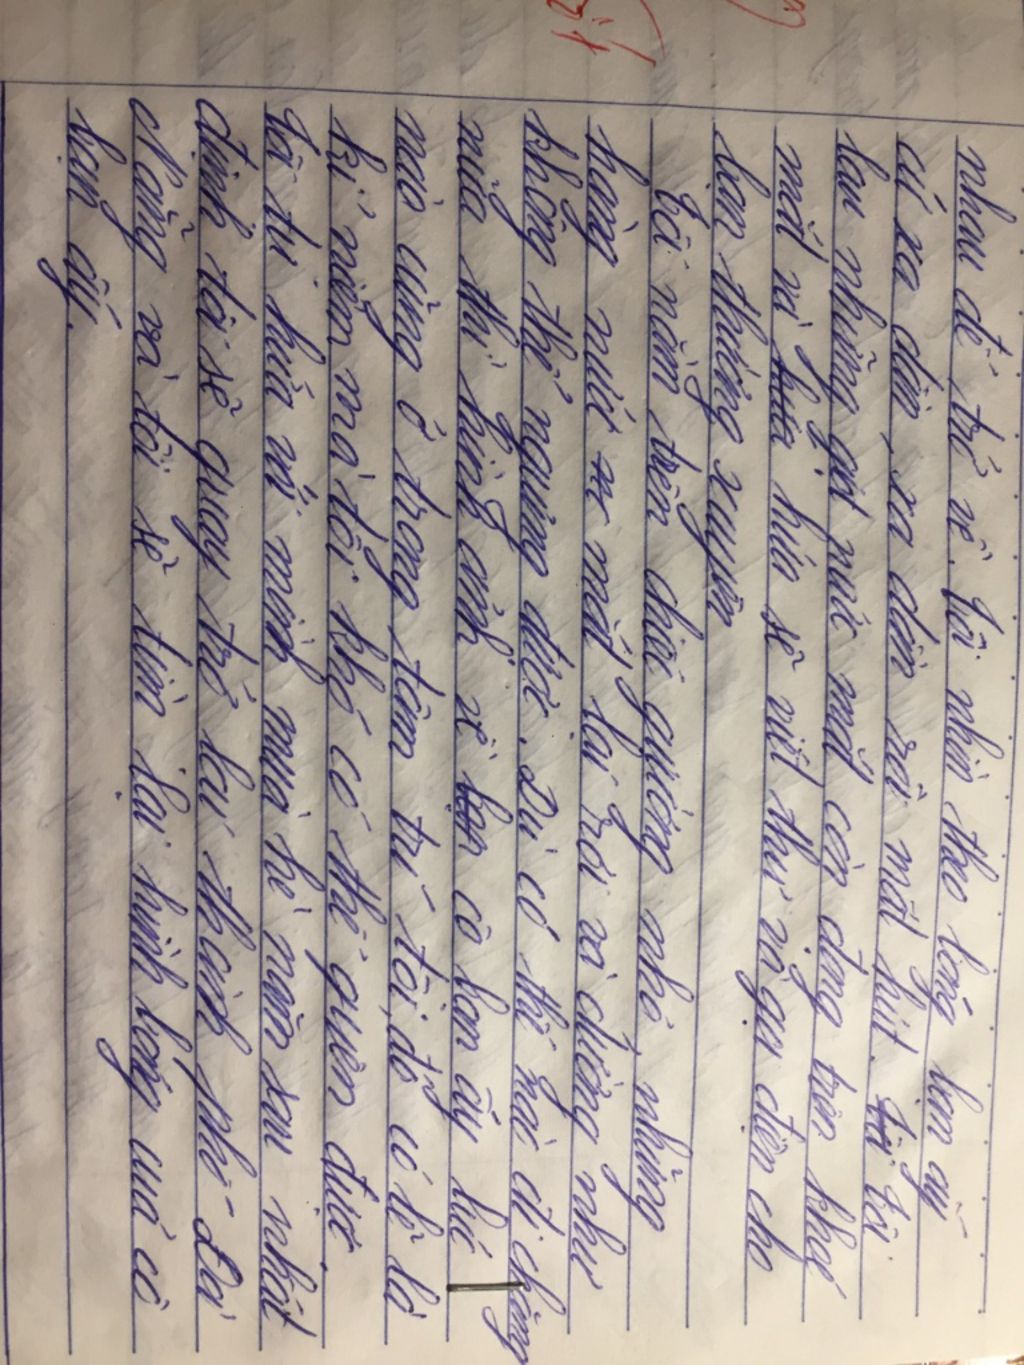 nhau để trở về. Tôi nhìn theo bóng bạn ấy
cứ xa dần, xa dần rồi mất hút. Tôi
lau những giọt nước mắt còn đọng trên khoé
mắt và hứa sẽ viết thư và gọi điện cho
bạn thường xuyên
Tôi nằm trên chiếc giường nhỏ những
hàng nước mắt lại rơi và dường như
không thể ngừng được. Dù có thế nào đi chăng
nữa thì hình ảnh về cô bạn ấy lúc
nào cũng ở trong tâm trí tôi, đó có lẽ là
kỉ niệm mà tôi khó có thể quên được.
Tôi tự hứa với mình mùa hè năm sau nhất
định tôi sẽ quay trở lại thành phố Đà
Nẵng và tôi sẽ tìm lại hình bóng của cô
bạn ấy.